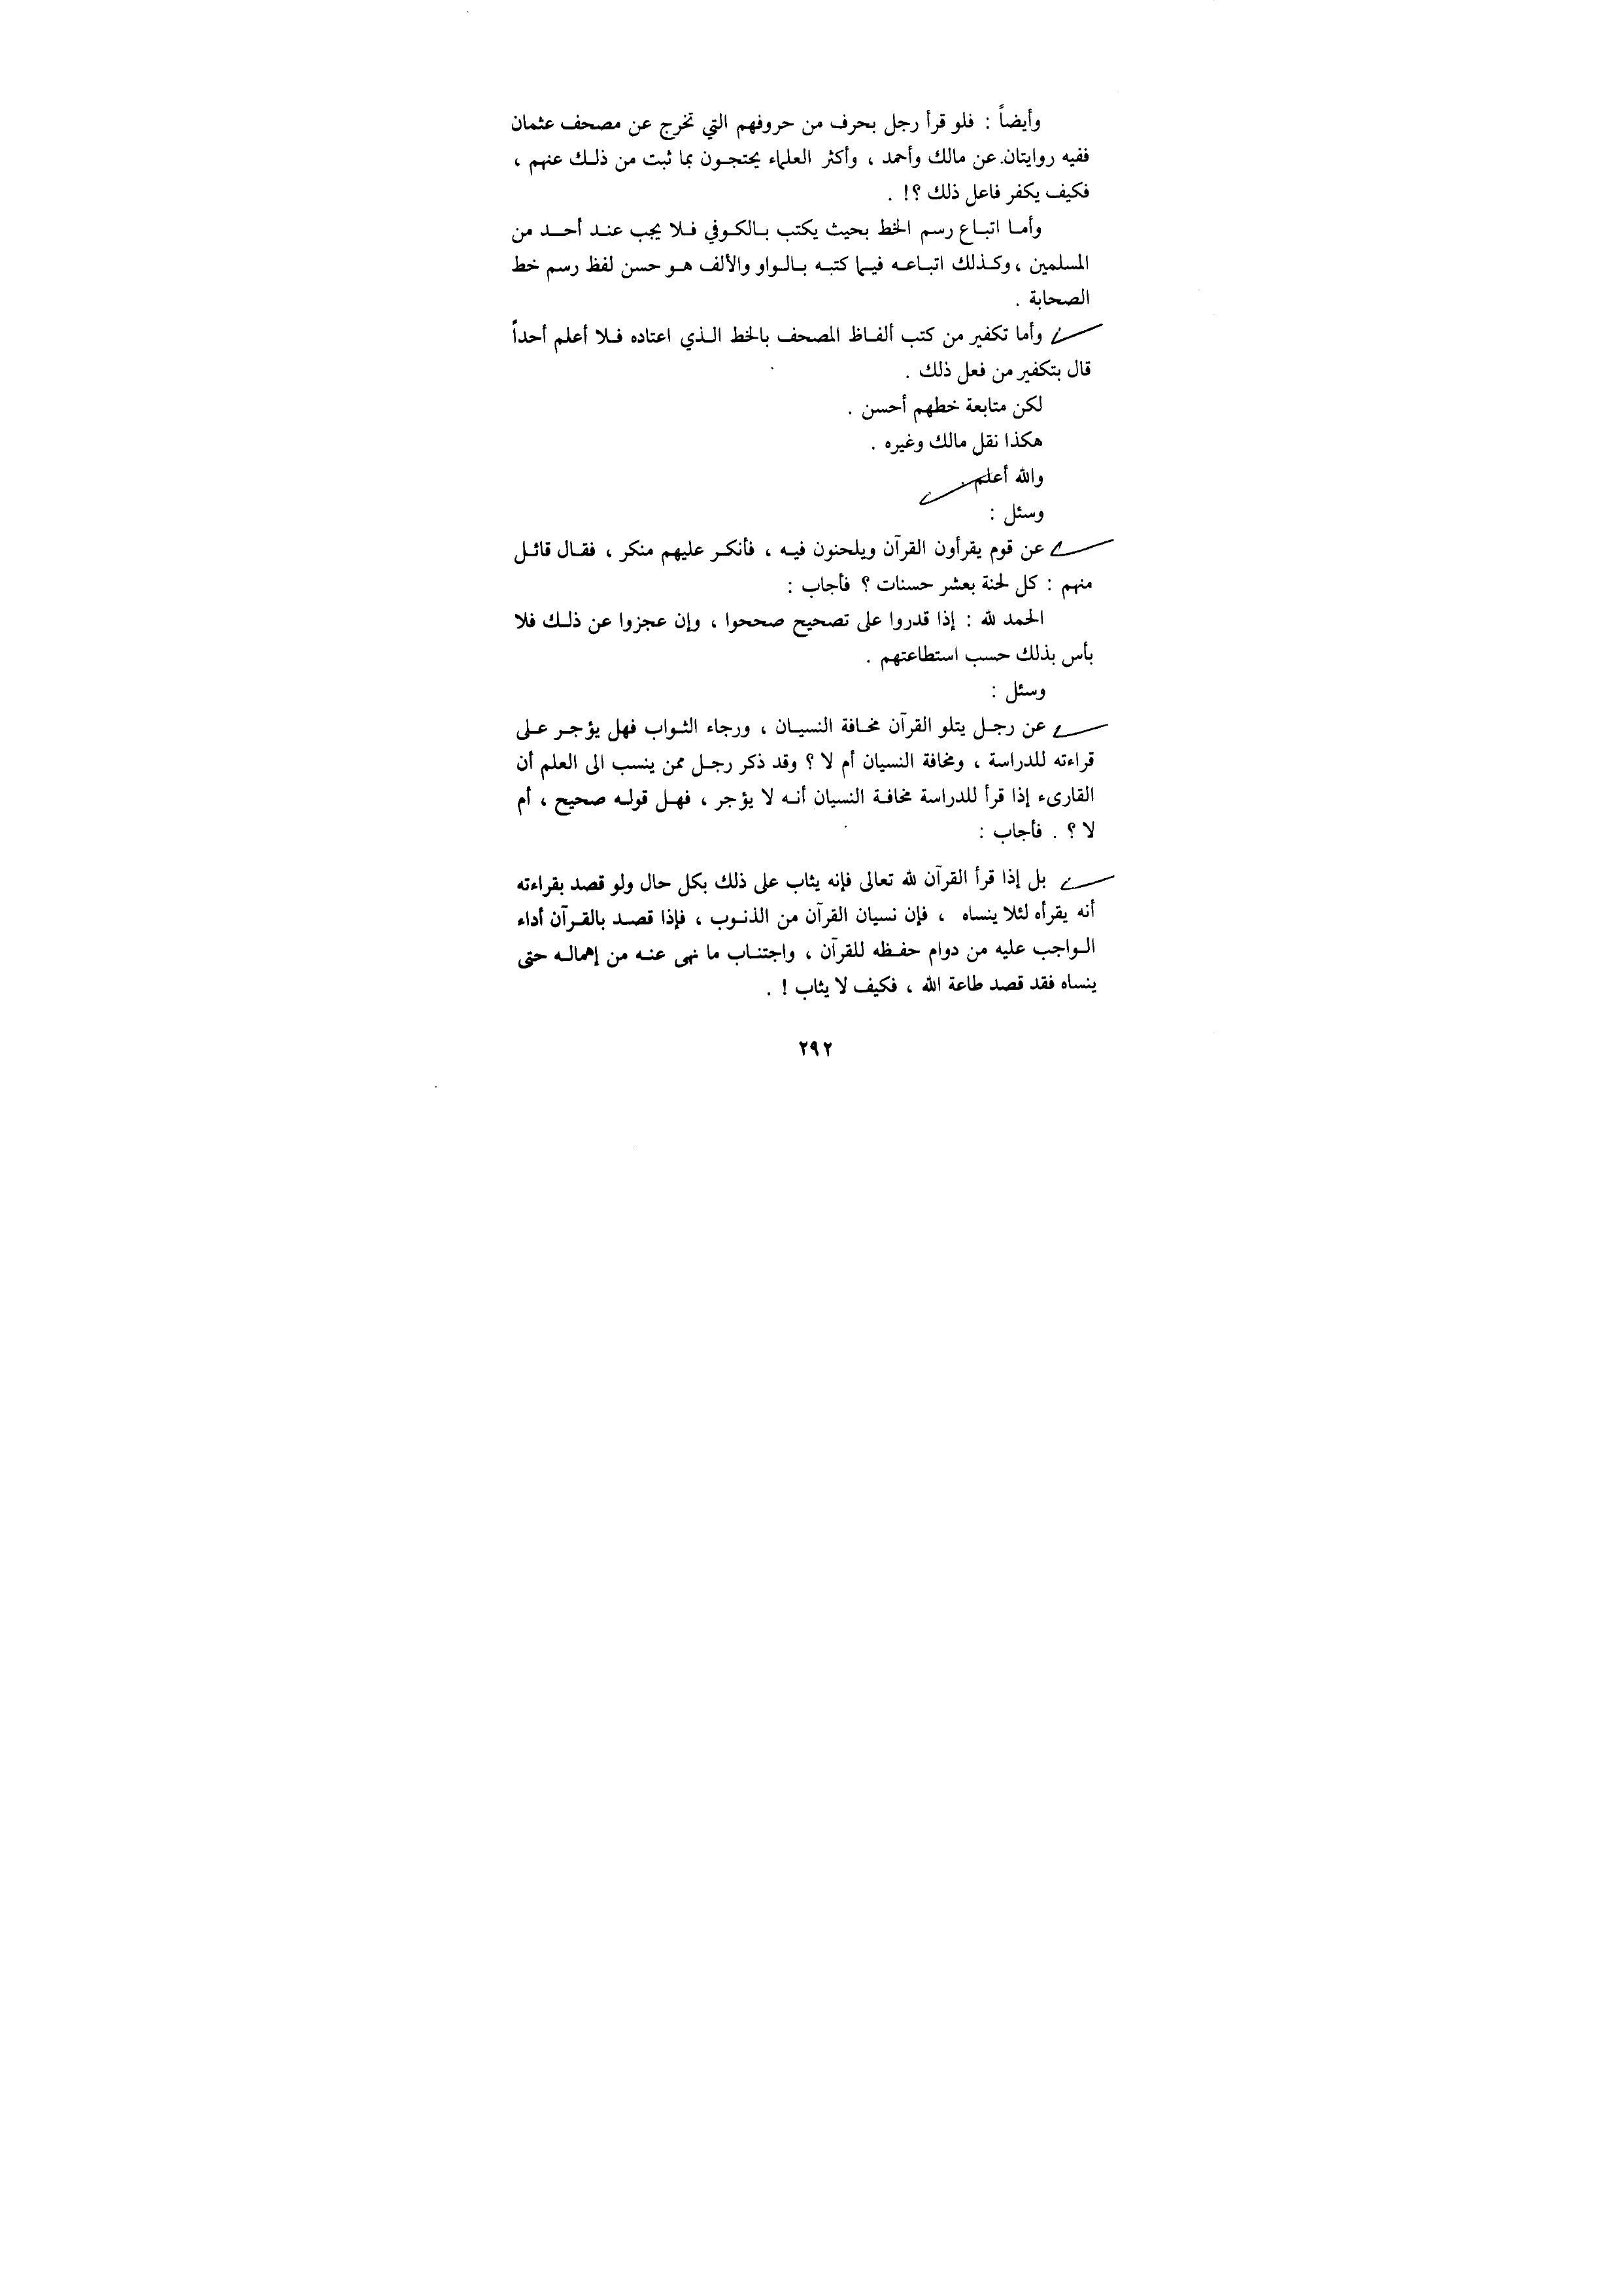 وأيضاً : فلو قرأ رجل بحرف من حروفهم التي تخرج عن مصحف عثمان
ففيه روايتان. عن مالك وأحمد ، وأكثر العلماء يحتجون بما ثبت من ذلك عنهم ،
فكيف يكفر فاعل ذلك ؟! .
وأما اتباع رسم الخط بحيث يكتب بالكوفي فلا يجب عند أحد من
المسلمين ، وكذلك اتباعه فيما كتبه بالواو والألف هو حسن لفظ رسم خط
الصحابة .
وأما تكفير من كتب ألفاظ المصحف بالخط الذي اعتاده فلا أعلم أحداً
قال بتكفير من فعل ذلك .
لكن متابعة خطهم أحسن .
هكذا نقل مالك وغيره .
والله أعلم .
وسئل :
عن قوم يقرأون القرآن ويلحنون فيه ، فأنكر عليهم منكر ، فقال قائل
منهم : كل لحنة بعشر حسنات ؟ فأجاب :
الحمد لله : إذا قدروا على تصحيح صححوا ، وإن عجزوا عن ذلك فلا
بأس بذلك حسب استطاعتهم .
وسئل :
عن رجل يتلو القرآن مخافة النسيان ، ورجاء الثواب فهل يؤجر على
قراءته للدراسة ، ومخافة النسيان أم لا ؟ وقد ذكر رجل ممن ينسب الى العلم أن
القارىء إذا قرأ للدراسة مخافة النسيان أنه لا يؤجر ، فهل قوله صحيح ، أم
لا ؟ . فأجاب :
بل إذا قرأ القرآن لله تعالى فإنه يثاب على ذلك بكل حال ولو قصد بقراءته
أنه يقرأه لئلا ينساه ، فإن نسيان القرآن من الذنوب ، فإذا قصد بالقرآن أداء
الواجب عليه من دوام حفظه للقرآن ، واجتناب ما نهى عنه من إهماله حتى
ينساه فقد قصد طاعة الله ، فكيف لا يثاب ! .
٢٩٢